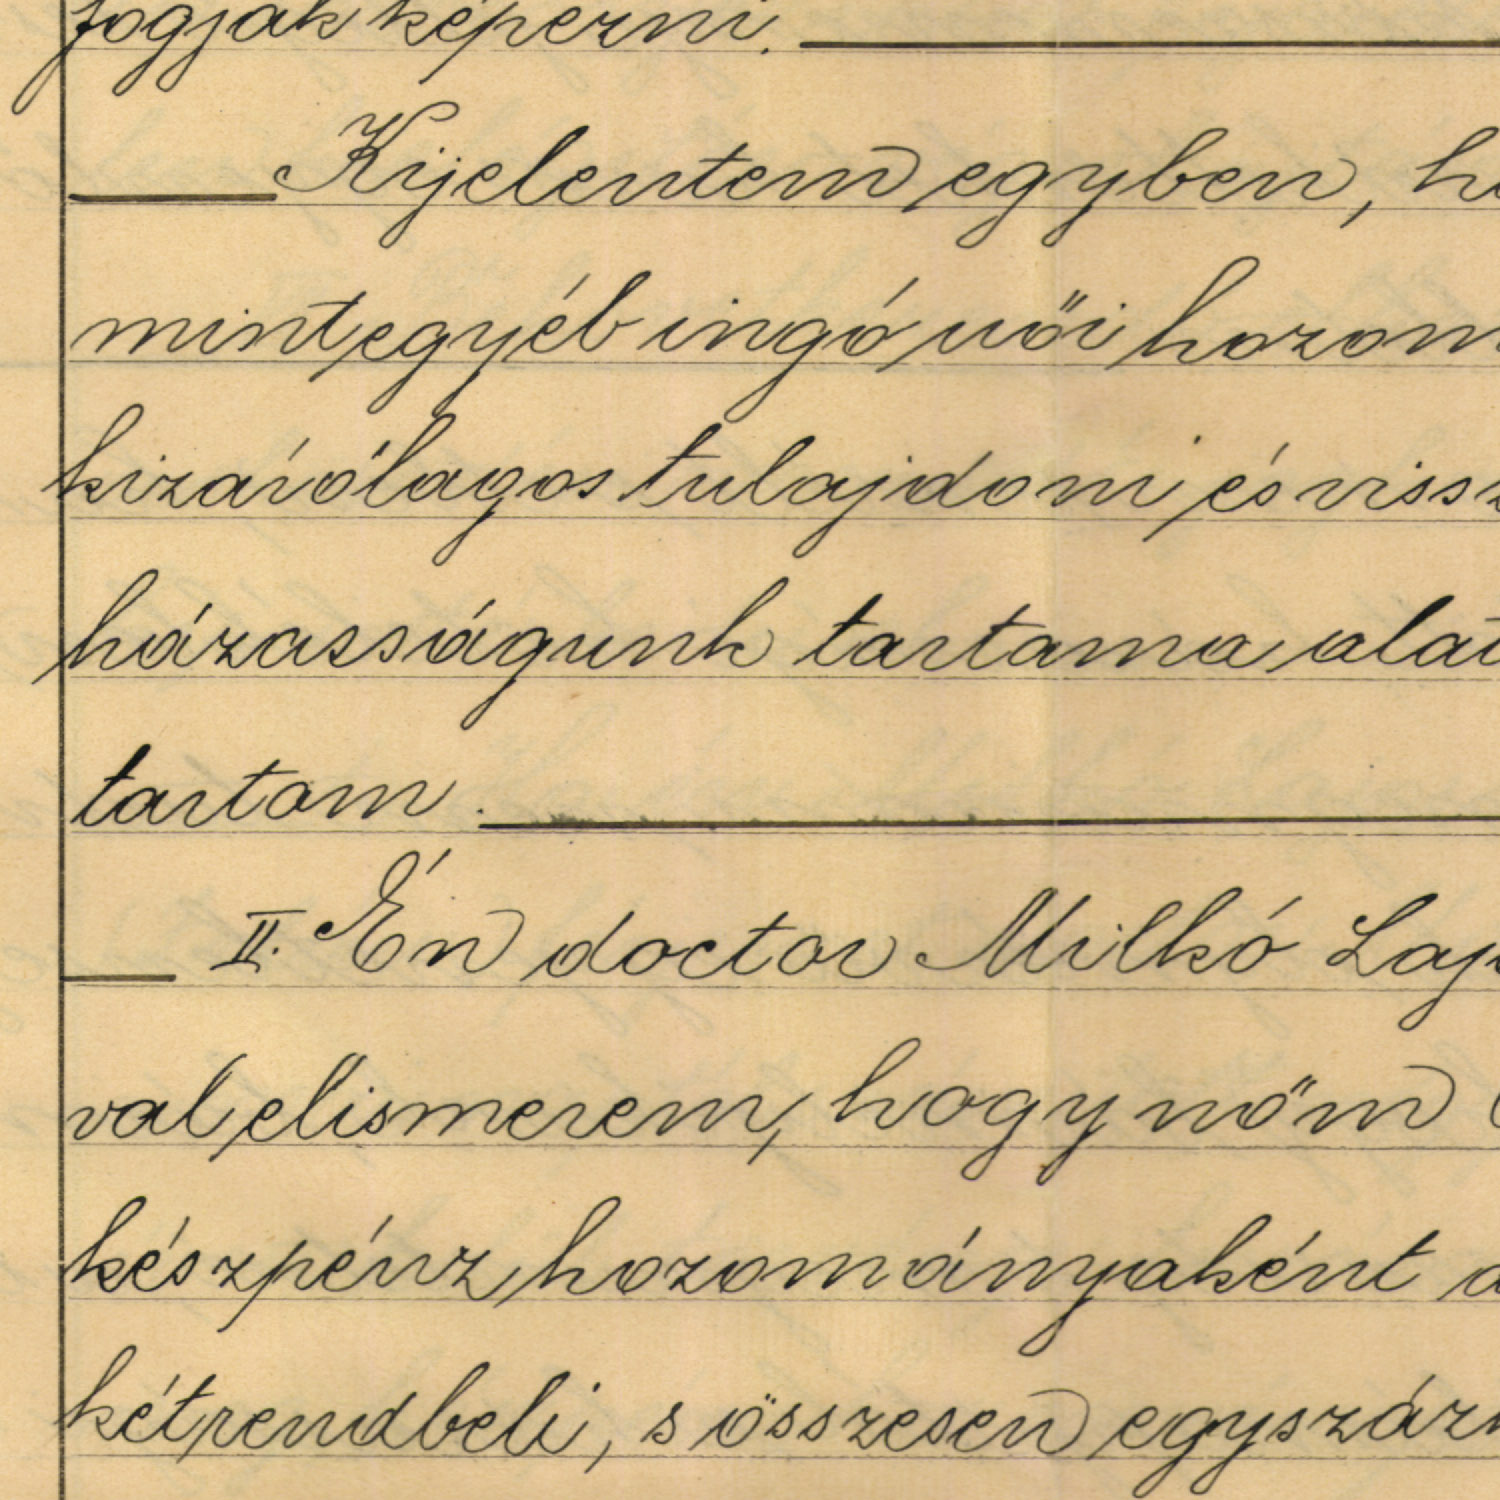 fogják képezni.
Kijelentem egyben,
mint egyéb ingó női
kizárólagos tulajdoni és
házasságunk tartama
tartom.
II. Én doctor Milkó
val elismerem, hogy nőm
készpénz hozományaként
kétrendbeli, s összesen